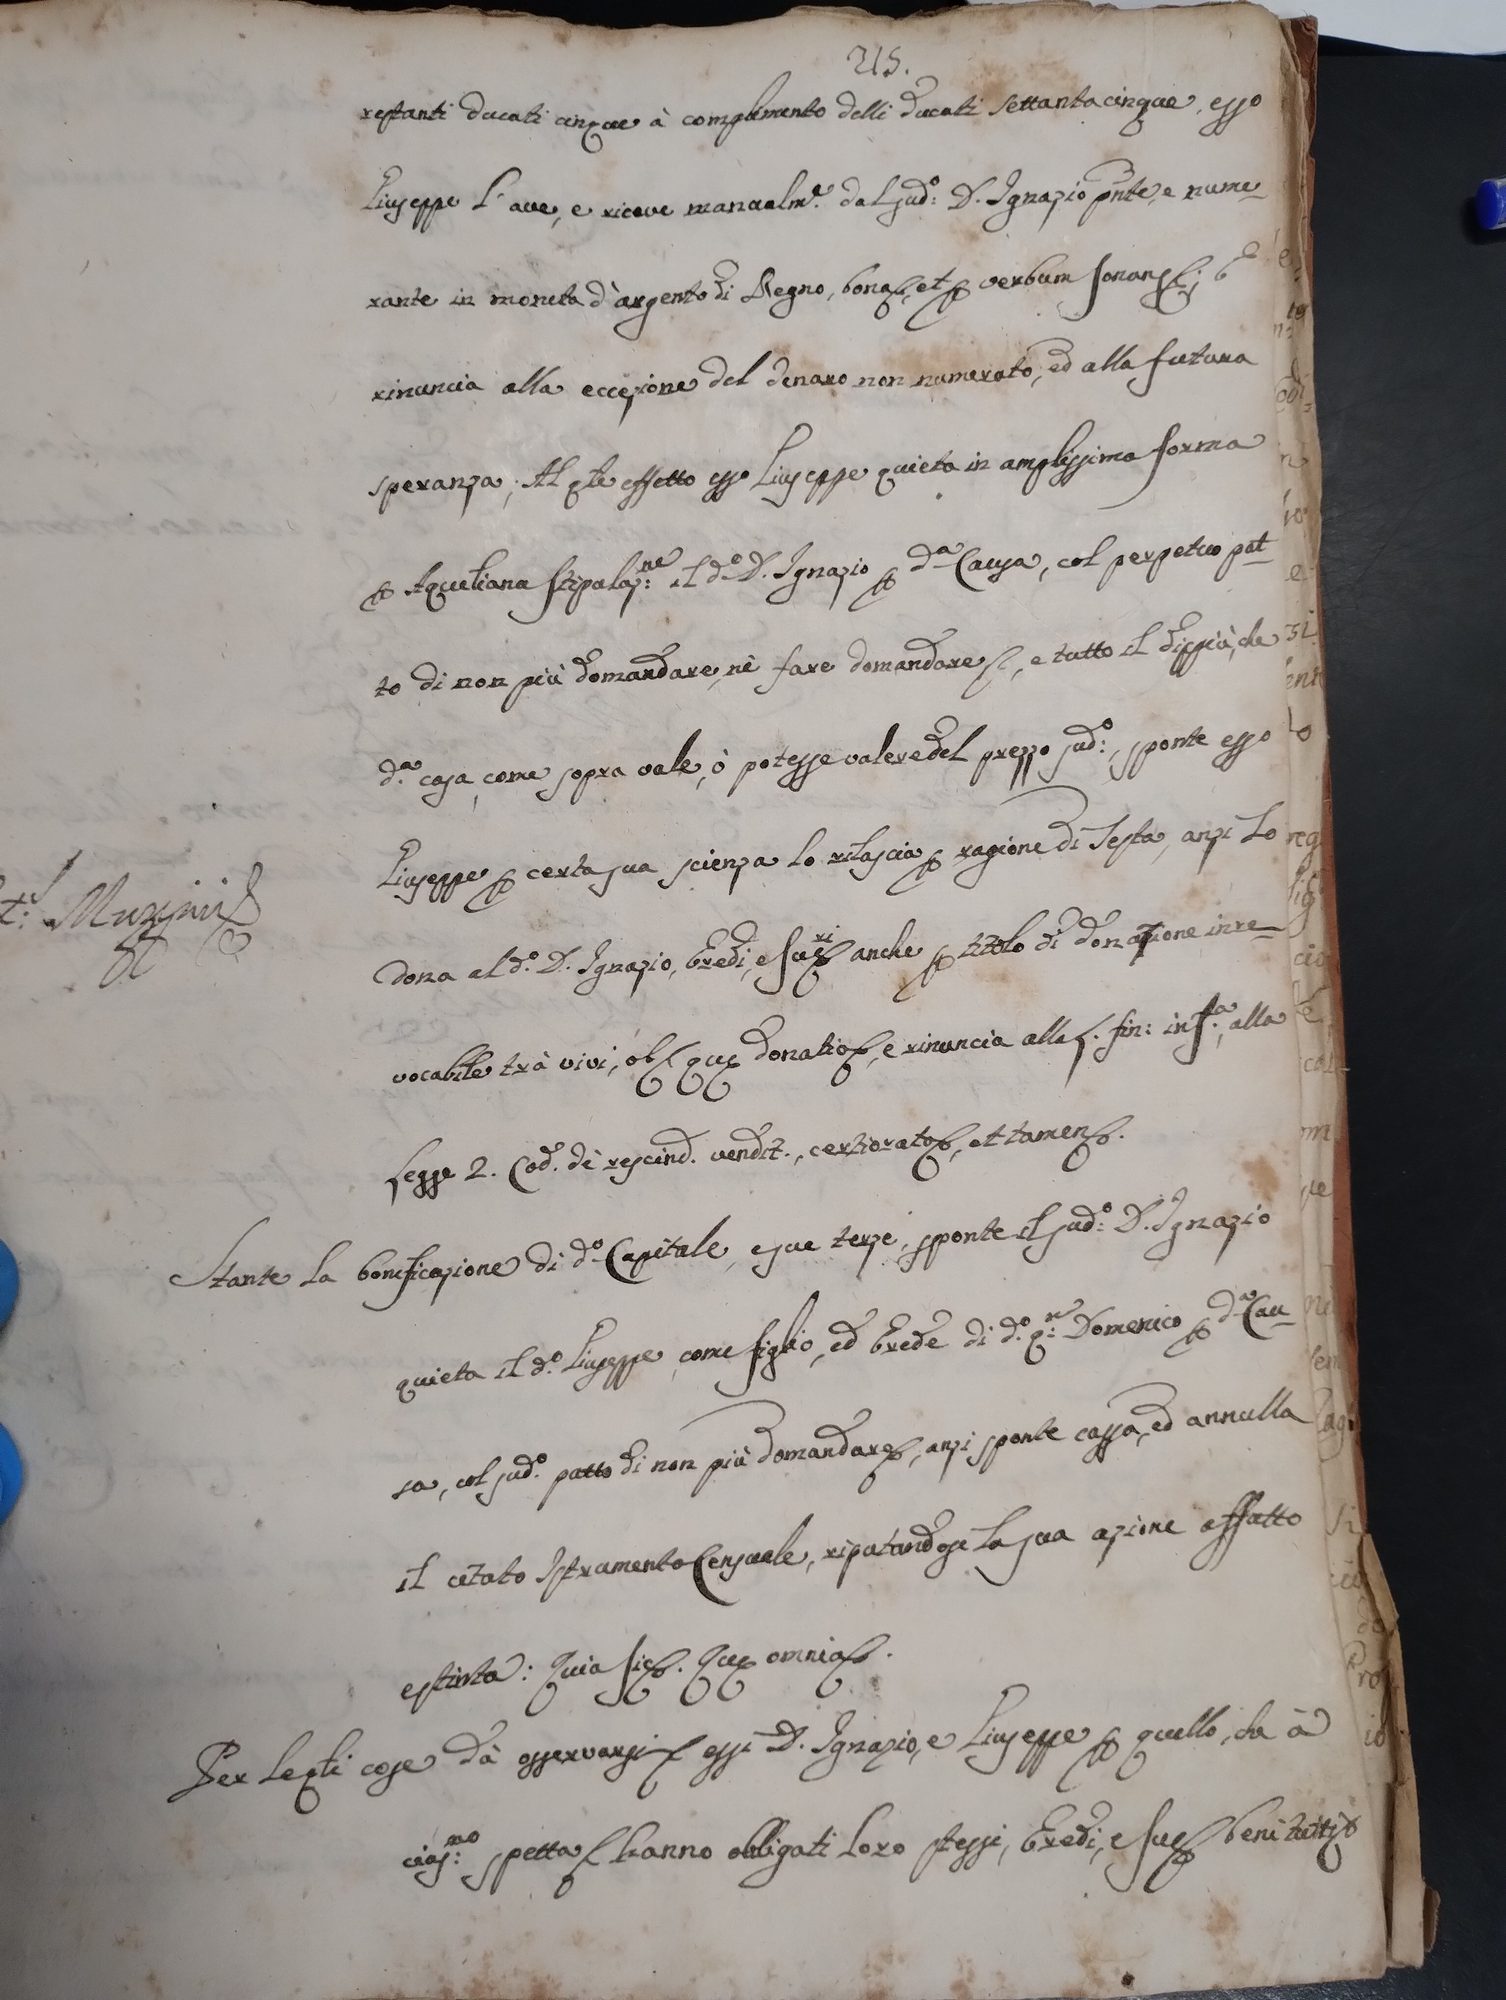 215.
restanti ducati cinque à complimento delli ducati settantacinque, esso
Giuseppe l'ave, e riceve manualm.e dal sud.o: D. Ignazio pnte, e nume-
rante in moneta d'argento di Regno, bona &, et verbum sonans &; e
rinuncia alla eccezione del denaro non numerato, ed alla futura
speranza; Al qle effetto esso Giuseppe quieta in amplissima forma
p Aquiliana stipulaz:ne il d.o D. Ignazio p d.a Causa, col perpetuo pat-
to di non più domandare, nè fare domandare &, e tutto il dippiù, che
d.a casa, come sopra vale, ò potesse valere del prezzo sud.o:, sponte esso
Giuseppe p certa sua scienza lo rilascia p ragione di Testa, anzi lo
t: Murzini
dona al d.o D. Ignazio, Eredi, e Suc.ri anche p titolo di donazione irre-
vocabile trà vivi, ob & que donatio &, e rinuncia alla l. fin: in f.a, alla
legge 2. Cod. dè rescind. vendit., certiorato &, et tamen &.
Stante la bonificazione di d.o Capitale, e sue terze, sponte il sud.o: D. Ignazio
quieta il d.o Giuseppe, come figlio, ed Erede di d.o q:m Domenico p d.a Cau-
sa, col sud.o patto di non più domandare &, anzi sponte cassa, ed annulla
il citato Istramento Censuale, riputandose la sua azione affatto
estinta: Quia sic &. Que omnia &.
Per le qli cose dà osservarsi & essi D. Ignazio, e Giuseppe p quello, che à
cias:mo spetta & hanno obligati loro stessi, Eredi, e Suc & beni tutti &